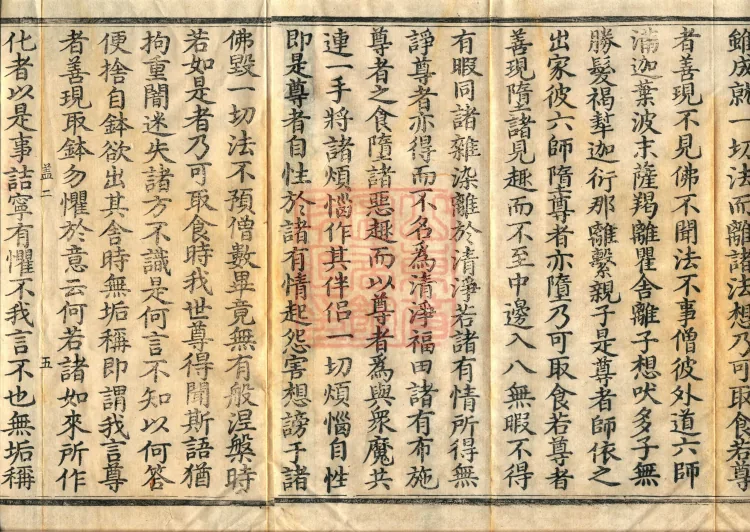 雖成就一切法而離諸法想乃可取食若尊
者善現不見佛不聞法不事僧彼外道六師
滿迦葉波末薩羯離瞿舍離子想吠多子無
勝髮褐犎迦衍那離繫親子是尊者師依之
出家彼六師墮尊者亦墮乃可取食若尊者
善現墮諸見趣而不至中邊入八無暇不得
有暇同諸雜染離於清淨若諸有情所得無
諍尊者亦得而不名爲清淨福田諸有布施
尊者之食墮諸惡趣而以尊者爲與衆魔共
連一手將諸煩惱作其伴侶一切煩惱自性
即是尊者自性於諸有情起怨害想謗于諸
佛毀一切法不預僧數畢竟無有般涅槃時
若如是者乃可取食時我世尊得聞斯語猶
拘重闇迷失諸方不識是何言不知以何答
便捨自鉢欲出其舍時無垢稱即謂我言尊
盖二
五
者善現取鉢勿懼於意云何若諸如來所作
化者以是事詰寧有懼不我言不也無垢稱